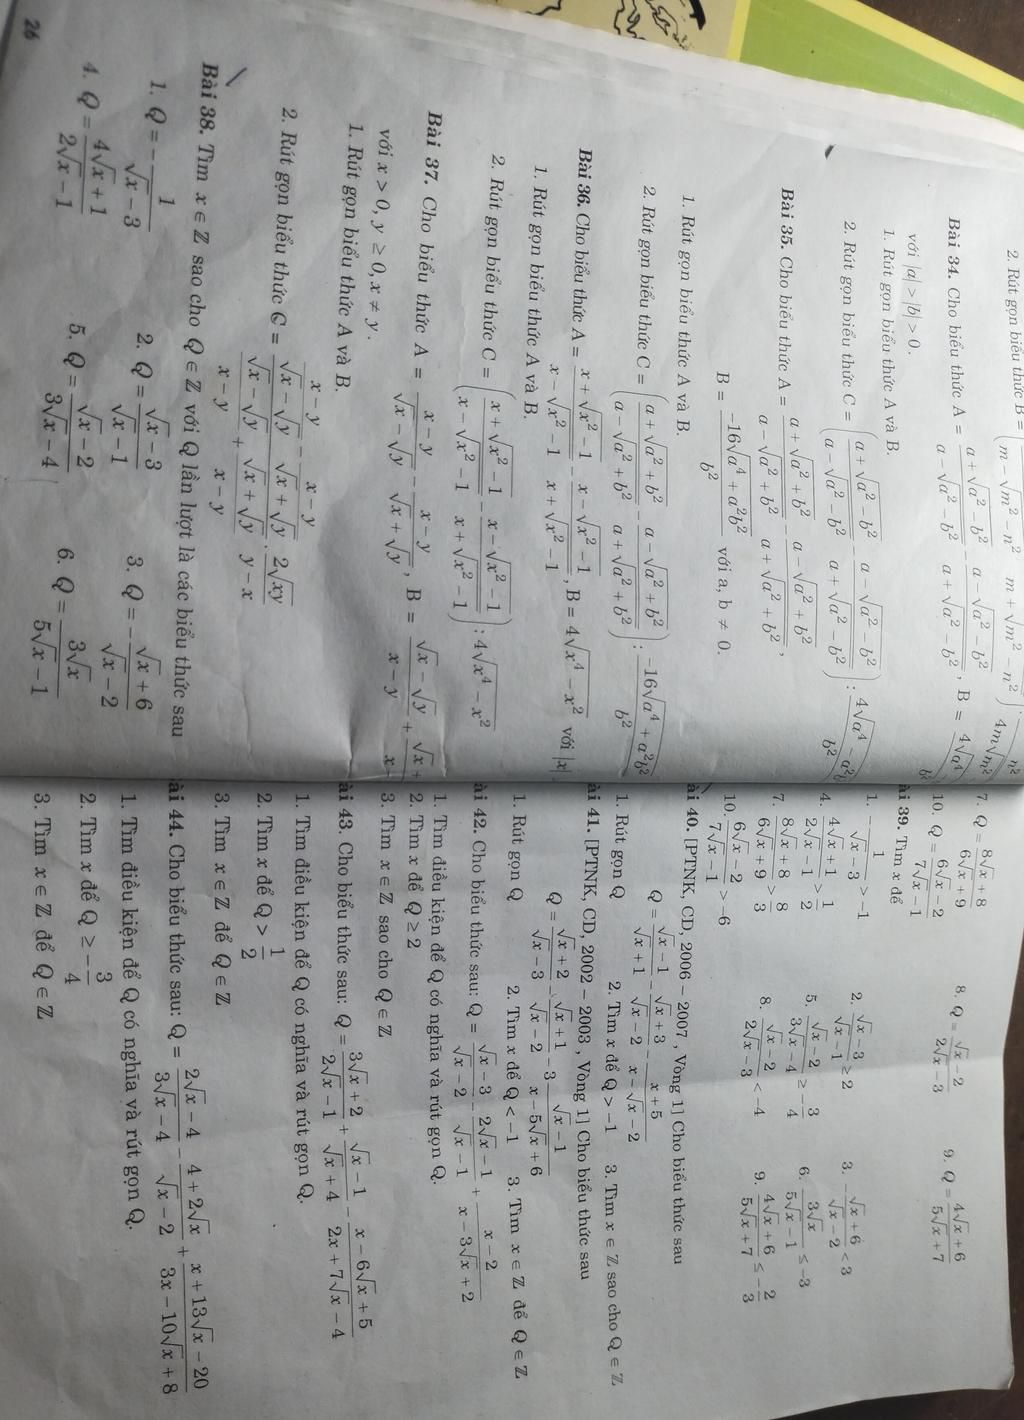 2. Rút gọn biểu thức B =
(m - √(m² - n²) m + √(m² - n²)) : 4m√m² n²
Bài 34. Cho biểu thức A = (a + √(a² - b²))/(a - √(a² - b²)) - (a - √(a² - b²))/(a + √(a² - b²)), B = 4√a⁴ b²
với |a| > |b| > 0.
1. Rút gọn biểu thức A và B.
2. Rút gọn biểu thức C = ((a + √(a² - b²))/(a - √(a² - b²)) - (a - √(a² - b²))/(a + √(a² - b²))) : (4√(a⁴ - a²b²))/b²
Bài 35. Cho biểu thức A = (a + √(a² + b²))/(a - √(a² + b²)) - (a - √(a² + b²))/(a + √(a² + b²)),
B = (-16√(a⁴ + a²b²))/b² với a, b ≠ 0.
1. Rút gọn biểu thức A và B.
2. Rút gọn biểu thức C = ((a + √(a² + b²))/(a - √(a² + b²)) - (a - √(a² + b²))/(a + √(a² + b²))) : (-16√(a⁴ + a²b²))/b²
Bài 36. Cho biểu thức A = (x + √(x² - 1))/(x - √(x² - 1)) - (x - √(x² - 1))/(x + √(x² - 1)), B = 4√(x⁴ - x²) với |x|
1. Rút gọn biểu thức A và B.
2. Rút gọn biểu thức C = ((x + √(x² - 1))/(x - √(x² - 1)) - (x - √(x² - 1))/(x + √(x² - 1))) : 4√(x⁴ - x²)
Bài 37. Cho biểu thức A = (x - y)/(√x - √y) - (x - y)/(√x + √y), B = (√x - √y)/(x - y) + (√x +)/(x -
với x > 0, y ≥ 0, x ≠ y.
1. Rút gọn biểu thức A và B.
2. Rút gọn biểu thức C = ((x - y)/(√x - √y) - (x - y)/(√x + √y))/((√x - √y)/(x - y) + (√x + √y)/(x - y)) . (2√xy)/(y - x)
Bài 38. Tìm x ∈ ℤ sao cho Q ∈ ℤ với Q lần lượt là các biểu thức sau
1. Q = -1/(√x - 3) 2. Q = (√x - 3)/(√x - 1) 3. Q = -(√x + 6)/(√x - 2)
4. Q = (4√x + 1)/(2√x - 1) 5. Q = (√x - 2)/(3√x - 4) 6. Q = (3√x)/(5√x - 1)
26
7. Q = (8√x + 8)/(6√x + 9) 8. Q = (√x - 2)/(2√x - 3) 9. Q = (4√x + 6)/(5√x + 7)
10. Q = (6√x - 2)/(7√x - 1)
ài 39. Tìm x để
1. -1/(√x - 3) > -1 2. (√x - 3)/(√x - 1) ≥ 2 3. -(√x + 6)/(√x - 2) < 3
4. (4√x + 1)/(2√x - 1) > 1/2 5. (√x - 2)/(3√x - 4) ≥ -3/4 6. (3√x)/(5√x - 1) ≤ -3
7. (8√x + 8)/(6√x + 9) > 8/3 8. (√x - 2)/(2√x - 3) < -4 9. (4√x + 6)/(5√x + 7) ≤ -2/3
10. (6√x - 2)/(7√x - 1) > -6
ài 40. [PTNK, CD, 2006 – 2007, Vòng 1] Cho biểu thức sau
Q = (√x - 1)/(√x + 1) - (√x + 3)/(√x - 2) - (x + 5)/(x - √x - 2)
1. Rút gọn Q 2. Tìm x để Q > -1 3. Tìm x ∈ ℤ sao cho Q ∈ ℤ
ài 41. [PTNK, CD, 2002 – 2003, Vòng 1] Cho biểu thức sau
Q = (√x + 2)/(√x - 3) - (√x + 1)/(√x - 2) - 3 (√x - 1)/(x - 5√x + 6)
1. Rút gọn Q 2. Tìm x để Q < -1 3. Tìm x ∈ ℤ để Q ∈ ℤ
ài 42. Cho biểu thức sau: Q = (√x - 3)/(√x - 2) - (2√x - 1)/(√x - 1) + (x - 2)/(x - 3√x + 2)
1. Tìm điều kiện để Q có nghĩa và rút gọn Q.
2. Tìm x để Q ≥ 2
3. Tìm x ∈ ℤ sao cho Q ∈ ℤ
ài 43. Cho biểu thức sau: Q = (3√x + 2)/(2√x - 1) + (√x - 1)/(√x + 4) - (x - 6√x + 5)/(2x + 7√x - 4)
1. Tìm điều kiện để Q có nghĩa và rút gọn Q.
2. Tìm x để Q > 1/2
3. Tìm x ∈ ℤ để Q ∈ ℤ
ài 44. Cho biểu thức sau: Q = (2√x - 4)/(3√x - 4) - (4 + 2√x)/(√x - 2) + (x + 13√x - 20)/(3x - 10√x + 8)
1. Tìm điều kiện để Q có nghĩa và rút gọn Q.
2. Tìm x để Q ≥ -3/4
3. Tìm x ∈ ℤ để Q ∈ ℤ